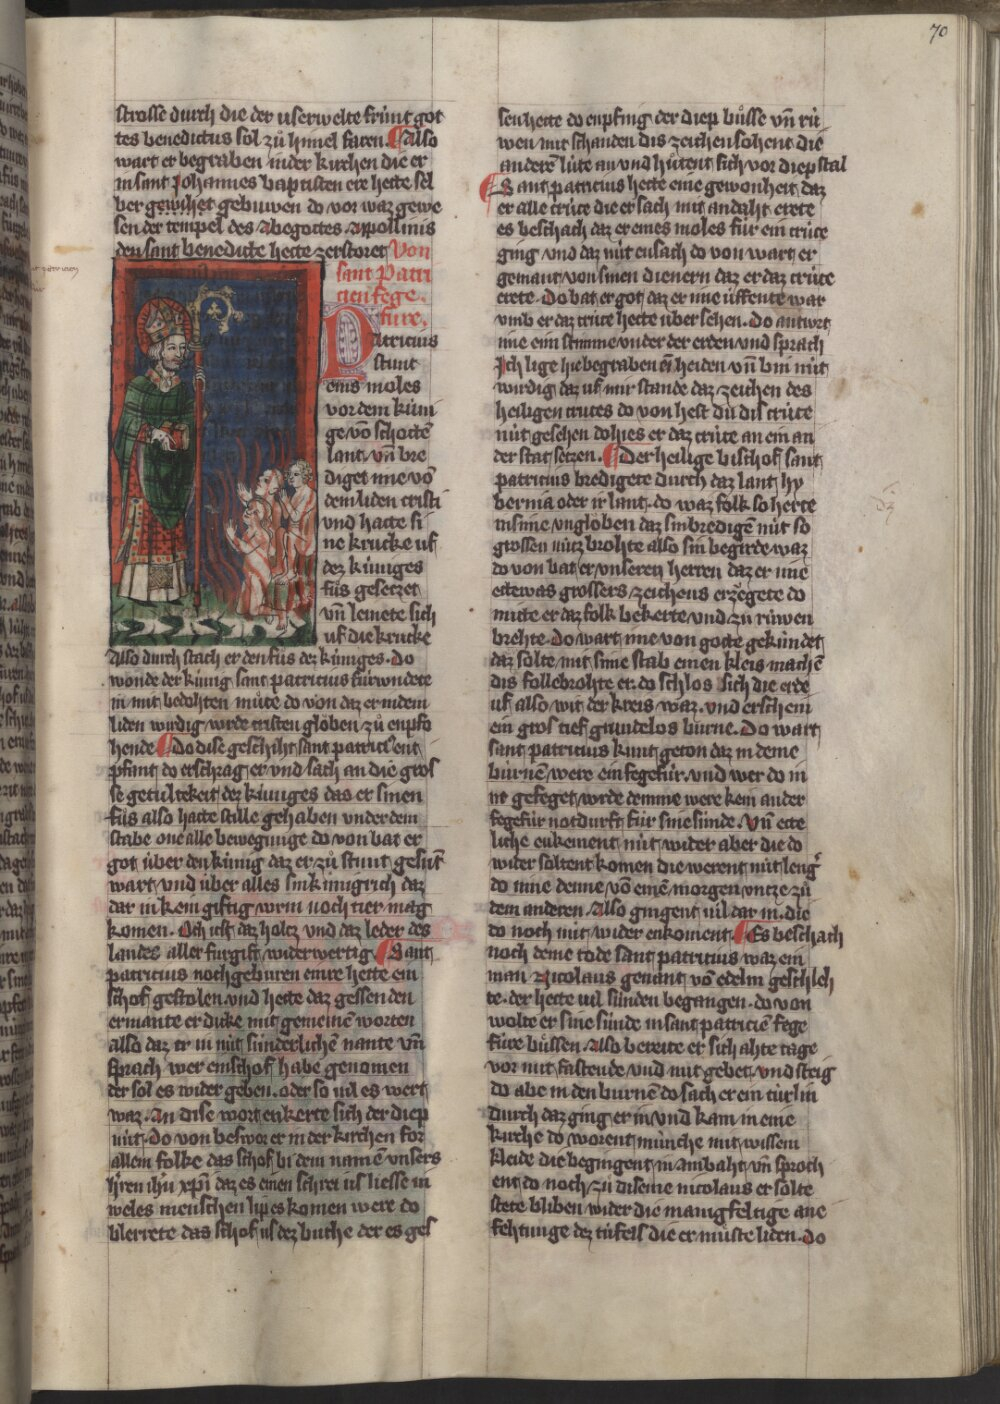 70
strosse durch die der userwelte frúnt got
tes benedictus sol zů himel faren. Also
wart er begraben in der kirchen die er
in sant Johannes baptisten ere hette sel
ber gewihet gebuwen do vor waz gewe
sen der tempel des Abegottes Appollinis
den sant benedicte hette zerstoret Von
sant Patri
cien fege
fúre.
Patricius
stunt
eins moles
vor dem kúni
ge vō schottē
lant, vn̄ bre
diget ime vō
dem liden cristi
vnd hatte si
ne krucke uf
dez kúniges
fůs gesetzet
vn̄ leinete sich
uf die krucke
Also durch stach er den fůs dez kúniges. Do
wonde der kúnig sant patricius fúrwndete
in mit bedohten můte do von daz er in dem
liden wirdig wrde cristen glöben zů enpfo
hende Do dise geschiht sant patricius ent
pfant do erschrag er vnd sach an die gros
se getultekeit dez kúniges das er sinen
fůs also hatte stille gehaben vnder dem
stabe one alle bewegunge do von bat er
got über den kúnig daz er zů stunt gesunt
wart vnd über alles sin kúnigrich daz
dar in kein giftig wrm noch tier mag
komen. Och ist daz holtz vnd daz leder des
landes aller furgift widerwertig. Sant
patricius nochgeburen eime hette ein
schof gestolen vnd hette daz gessen den
ermante er dicke mit gemeinē worten
also daz er in nút súnderlichē nante vn̄
sprach wer ein schof habe genomen
der sol es wider geben. oder so vil es wert
waz. An dise wort enkerte sich der diep
nút. Do von beswor er in der kirchen for
allem folke das schof bi dem namē vnsers
h̄ren ih̄u xp̄i daz es einen schrei us liesse in
weles menschen lip es komen were do
blerrete das schof us dez buche der es ges
sen hette do enpfing der diep bůsse vn̄ rú
wen mit schanden dis zeichen sohent die
anderē lúte an vnd hůtent sich vor diepstal
Sant patricius hette eine gewonheit daz
er alle crúce die er sach mit andaht erete
es beschach daz er eines moles fúr ein crúce
ging vnd daz nút ensach do von wart er
gemant von sinen dienern daz er daz crúce
erete. Do bat er got daz er ime úffente war
vmb er daz crúce hette über sehen. Do antwrt
ime ein stimme vnder der erden vnd sprach
Ich lige hie begraben ein heiden vn̄ bin nút
wirdig daz uf mir stande daz zeichen des
heiligen cruces do von hest du dis crúce
nút gesehen do hies er daz crúce an ein an
der stat setzen. Der heilige bischof sant
patricius bredigete durch daz lant hy
bernia oder irlant. do waz folk so herte
in sime vnglöben daz sin bredigē nút so
grossen nútz brohte also sin begirde waz
do von bat er vnseren herren daz er ime
ettewas grossers zeichens erzögete do
mitte er daz folk bekerte vnd zu rúwen
brehte. Do wart ime von gotte gekúndet
daz solte mit sime stab einen kreis machē
dis follebrohte er. do schlos sich die erde
uf also wit der kreis waz. vnd erschein
ein gros tief grundelos burne. Do wart
sant patricius kunt geton daz in deme
burnē were ein fegefúr vnd wer do in
nt gefeget wrde demme were kein ander
fegefúr notdurft fúr sine súnde. Vn̄ ette
liche enkement nút wider aber die do
wider soltent komen die werent nút leng̊
do inne denne vō einē morgen vntze zů
dem anderen. Also gingent vil dar in. die
do noch nút wider enkoment. Es beschach
noch deme tode sant patricius waz ein
man Nicolaus genant vō edelm geschleh
te. der hette vil súnden begangen. do von
wolte er sine súnde in sant patriciē fege
fúre bůssen. Also bereite er sich ahte tage
vor mit fastende vnd mit gebet. vnd steig
do abe in den burnē do sach er ein túrlin
durch daz ging er in vnd kam in eine
kirche do worent múnche mit wissem
kleide die begingent in ambaht vn̄ sproch
ent do noch zů diseme nicolaus er sölte
stete bliben wider die manigfeltige ane
fehtunge dez túfels die er můste liden. Do